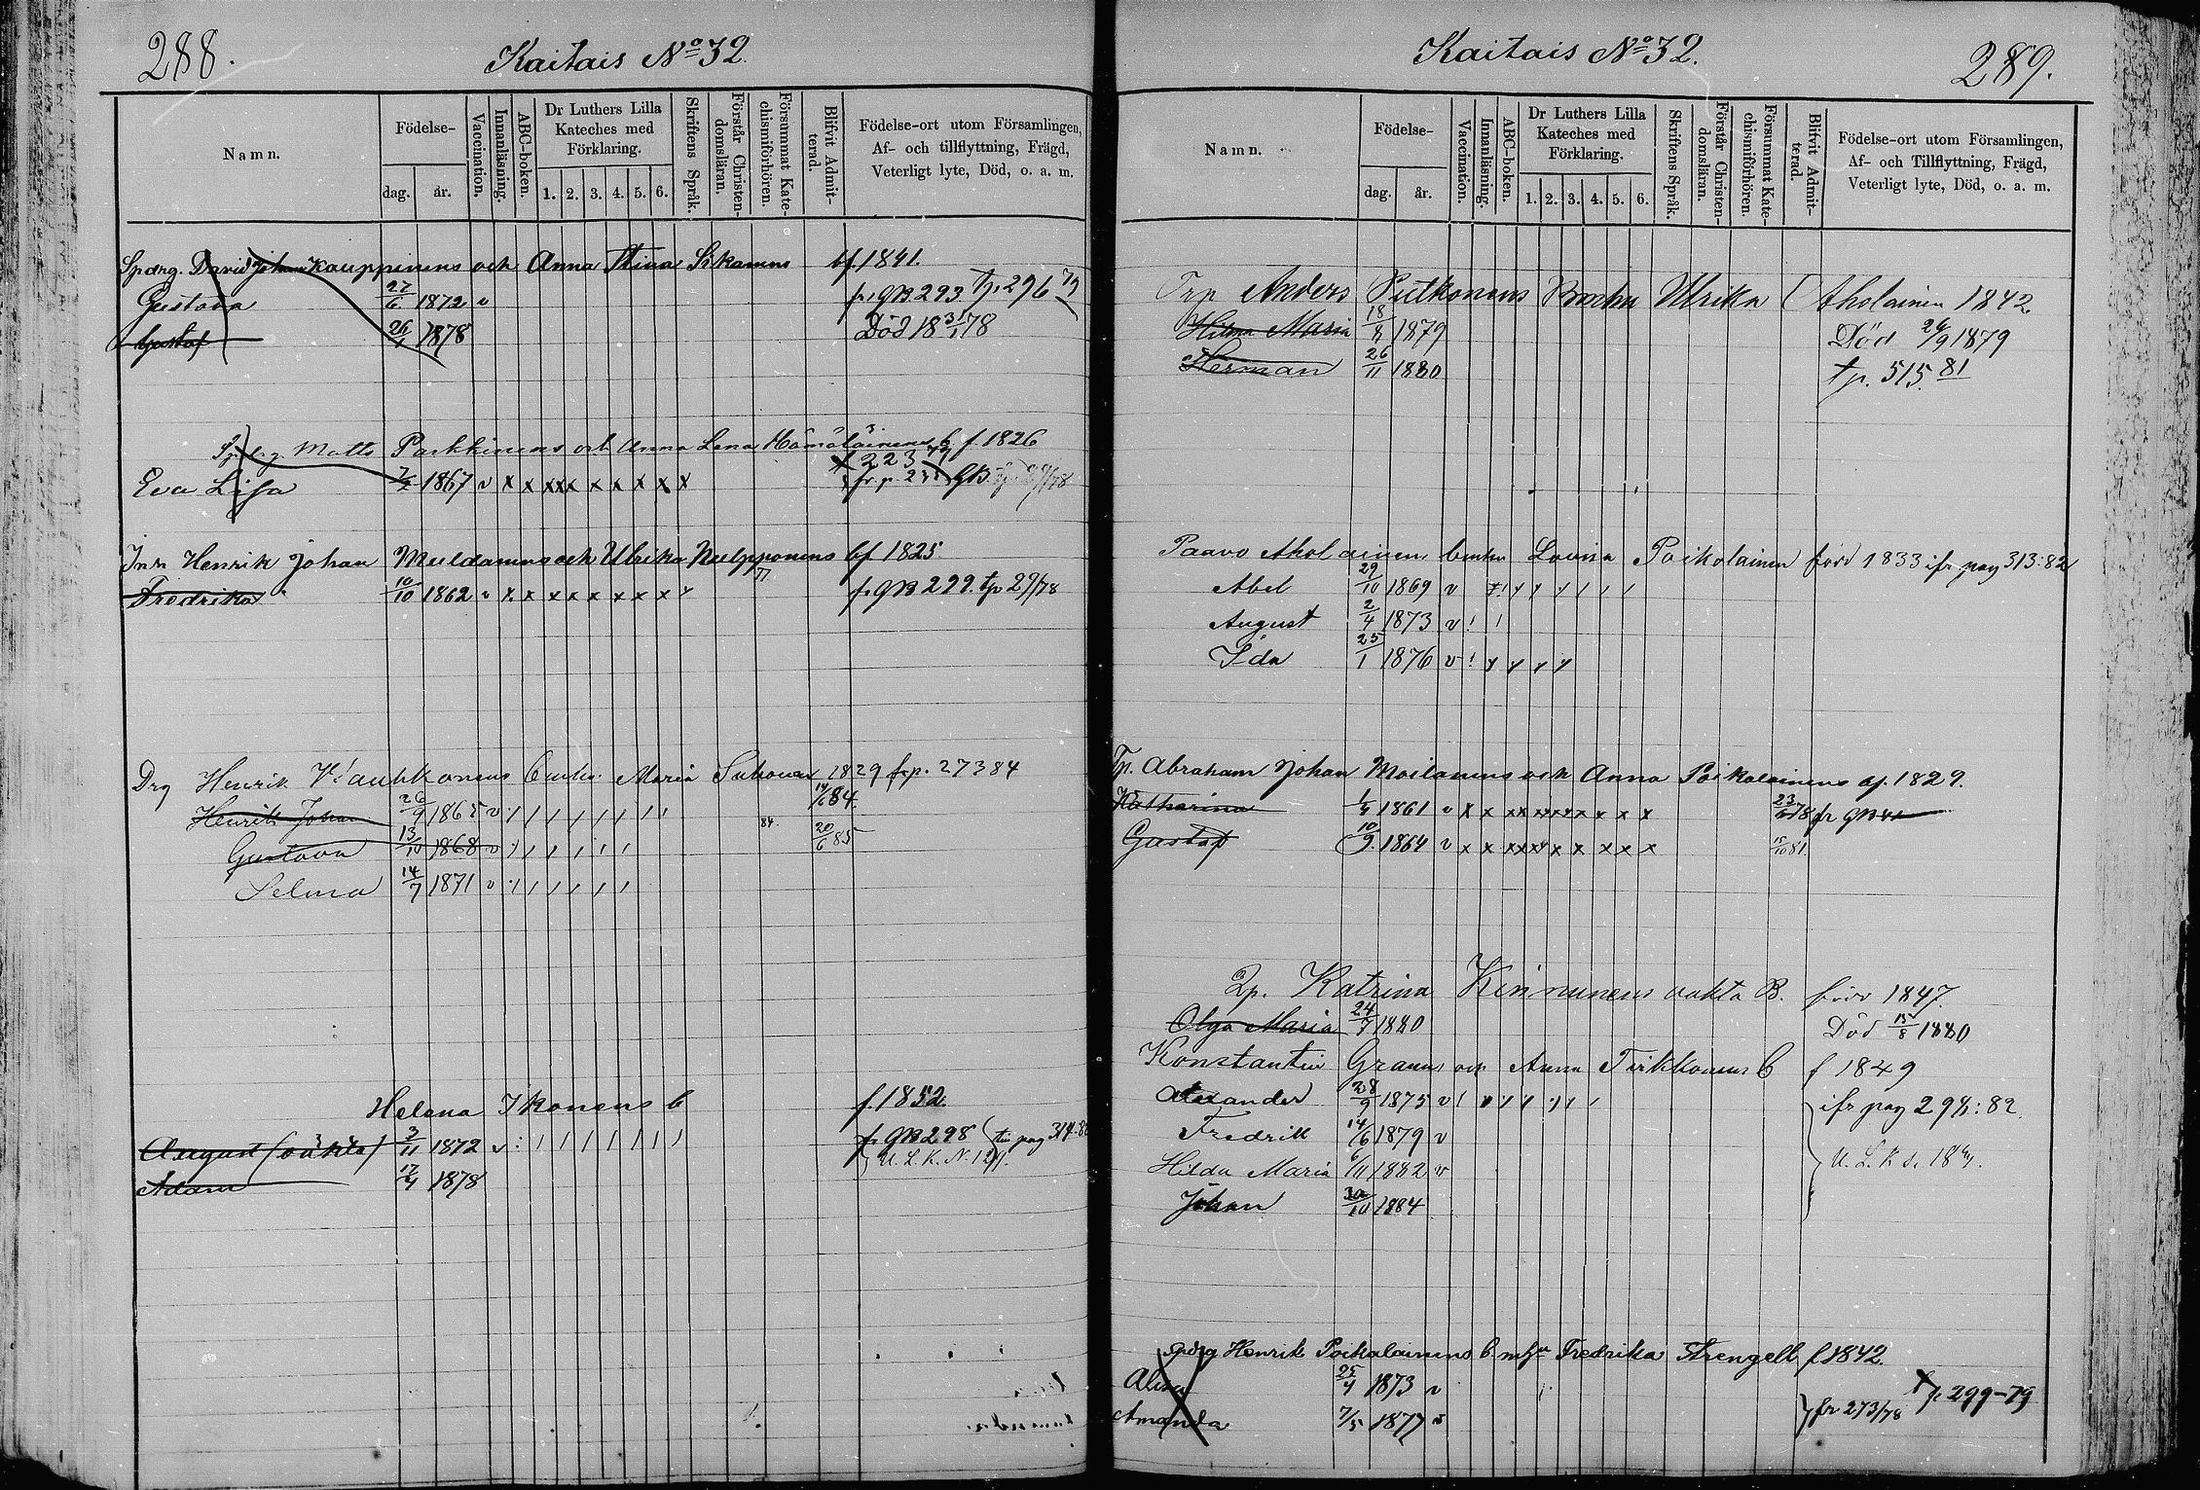 288.
Kaitais No 32.
Namn.
Födelse-
dag.
år.
Vaccination.
Innanläsning.
ABC-boken.
Dr Luthers Lilla
Kateches med
Förklaring.
1. 2. 3. 4. 5. 6.
Skriftens Språk.
Förstår Christen-
domsläran.
Försummat Kate-
chismiförhören.
Blifvit Admit-
terad.
Födelse-ort utom Församlingen,
Af- och tillflyttning, Frägd,
Veterligt lyte, Död, o. a. m.
Spdrg. David Johan Kauppinens och Anna Stina Sikanens bf. 1841.
Gustava 27/6 1872 v fr. GB 293 tp. 296 79
Gustaf 26/1 1878 Död 18 31/1 78
Matts Parkkinens och Anna Lena Hämäläinens b. f. 1826
Eva Lisa 1867 v x x x x x x x x x x
Inh Henrik Johan Muldanens och Ulrika Nulpponens bf 1825.
Fredrika 10/10 1862 v x x x x x x x x fr GB 299. tp 29/78
Drg Henrik Maria 1829 frp. 273 84
Henrik Johan 26/9 1865 v 14/6 84.
Gustava 13/10 1868 v 84. 20/6 85
Selma 14/7 1871 v
Helena Ikonens b f. 1852.
August (oäkta) 3/11 1872 v fr GB 298
Adam 17/4 1878
289.
Kaitais No 32.
Namn.
Födelse-
dag.
år.
Vaccination.
Innanläsning.
ABC-boken.
Dr Luthers Lilla
Kateches med
Förklaring.
1. 2. 3. 4. 5. 6.
Skriftens Språk.
Förstår Christen-
domsläran.
Försummat Kate-
chismiförhören.
Blifvit Admit-
terad.
Födelse-ort utom Församlingen,
Af- och Tillflyttning, Frägd,
Veterligt lyte, Död, o. a. m.
Anders Putkonens Ulrika Aholainen 1842
Maria 18/8 1879 Död 26/9 1879
Herman 26/11 1880 tp. 515. 81
Paavo Aholainen Lovisa Poikolainen född 1833 ifr pag 313:82
Abel 29/10 1869 v
August 2/4 1873 v
Ida 25/1 1876 v
Tp. Abraham Johan Moilanens och Anna Poikolainens bf. 1829.
Katharina 1/4 1861 v x x x x x x x x x x 23/6 78 fr GB
Gustaf 10/9 1864 v x x x x x x x x x x 15/10 81.
Katrina Kinnunens oäkta B. född 1847.
Olga Maria 24/7 1880 Död 15/8 1880
Konstantin Grams och Anna Tirkkonens b f 1849
Alexander 28/9 1875 v ifr pag 298:82.
Fredrik 14/6 1879 v
Hilda Maria 6/11 1882 v
Johan 30/10 1884
Spdrg Henrik Poikolainens b m hu Fredrika Strengell f 1842.
Alina 25/4 1873 v
Amanda 7/5 1877 v fr 273/78 tp. 299-79